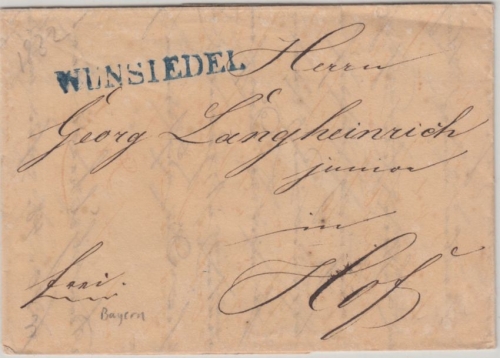 1822
WUNSIEDEL
Herrn
Georg Langheinrich
junior
in
Hof
frei.
Bayern